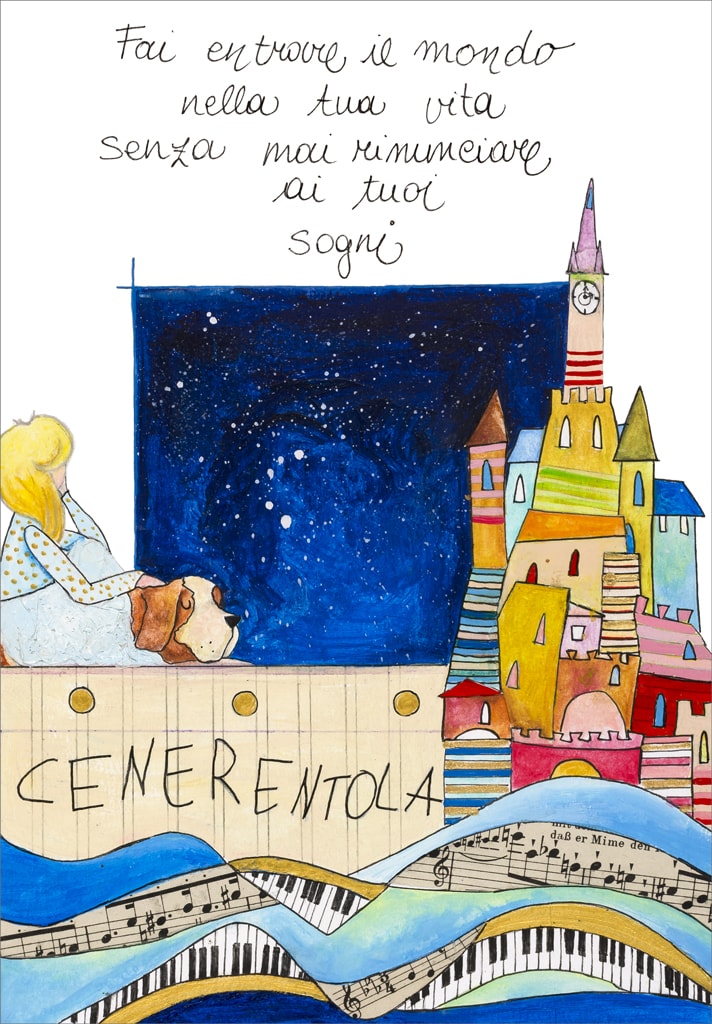 Fai entrare il mondo
nella tua vita
senza mai rinunciare
ai tuoi
sogni
CENERENTOLA
daß er Mime den